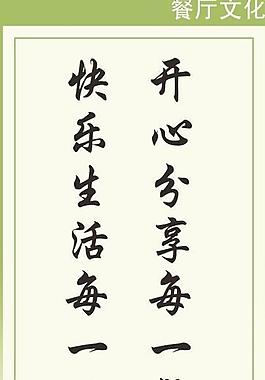 餐厅文化
开心分享每一
快乐生活每一